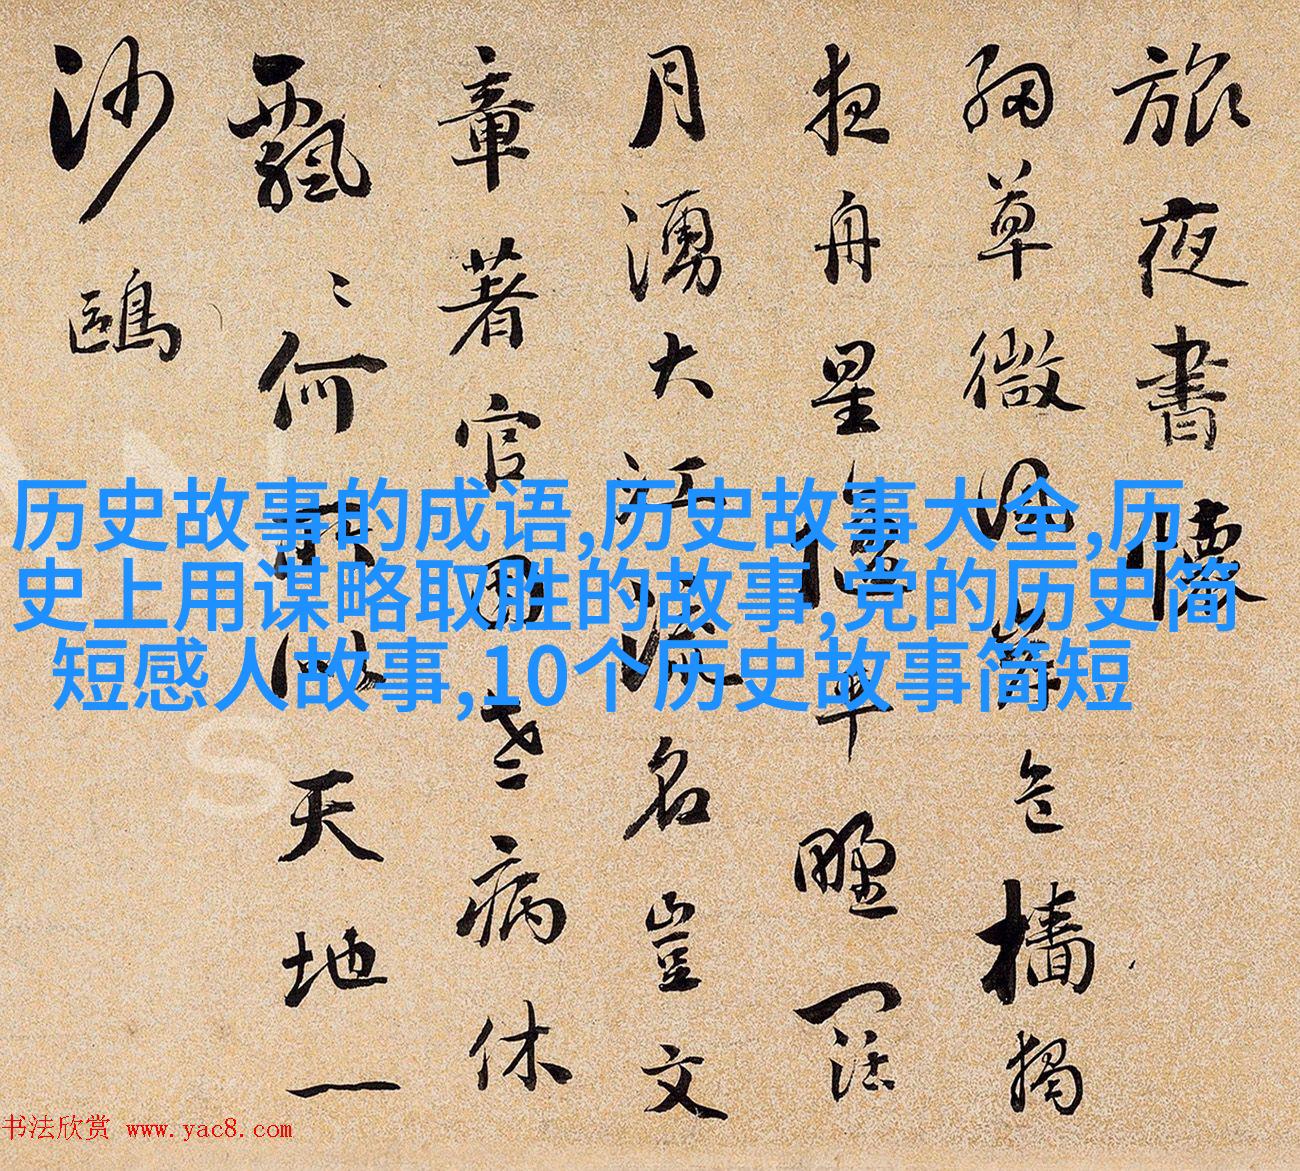 旅夜書懷
細草微風岸危檣獨
夜舟星平野闊
月湧大江流名豈文
章著官因老病休
飄〻何所似天地一
沙鷗
历史故事的成语,历史故事大全,历
史上用谋略取胜的故事,党的历史简
短感人故事,10个历史故事简短
书法欣赏 www.yac8.com